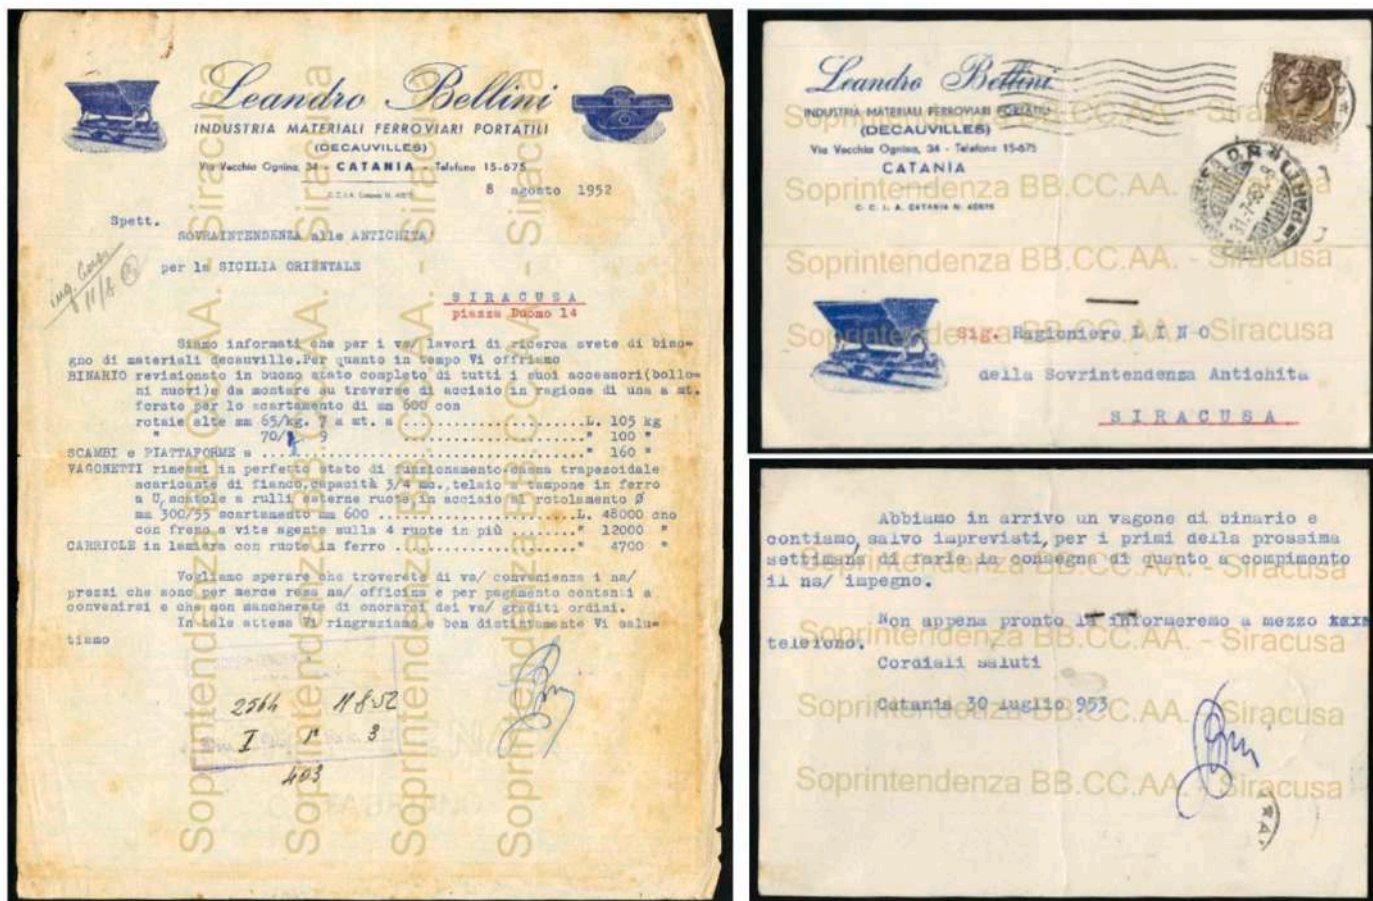 Leandro Bellini
INDUSTRIA MATERIALI FERROVIARI PORTATILI
(DECAUVILLES)
Via Vecchia Ognina, 34 - CATANIA - Telefono 15-675
C.C.I.A. Catania N. 40576
8 agosto 1952
Spett.
SOVRAINTENDENZA alle ANTICHITA'
per la SICILIA ORIENTALE
11/8
SIRACUSA
piazza Duomo 14
Siamo informati che per i vs/ lavori di ricerca avete di biso-
gno di materiali decauville.Per quanto in tempo Vi offriamo
BINARIO revisionato in buono stato completo di tutti i suoi accessori(bollo-
ni nuovi)e da montare su traverse di acciaio in ragione di una a mt.
forate per lo scartamento di mm 600 con
rotaie alte mm 65/kg. 7 a mt. a ........................L. 105 kg
" 70/ 9 ........................" 100 "
SCAMBI e PIATTAFORME a ........................" 160 "
VAGONETTI rimessi in perfetto stato di funzionamento-cassa trapezoidale
scaricante di fianco,capacità 3/4 mc.,telaio a tampone in ferro
a U,scatole a rulli esterne ruote,in acciaio al rotolamento Ø
mm 300/55 scartamento mm 600 ........................L. 48000 cno
con freno a vite agente sulla 4 ruote in più ........" 12000 "
CARRIOLE in lamiera con ruote in ferro ........................" 4700 "
Vogliamo sperare che troverete di vs/ convenienza i ns/
prezzi che sono per merce resa ns/ officina e per pagamento contanti a
convenirsi e che non mancherete di onorarci dei vs/ graditi ordini.
In tale attesa Vi ringraziamo e ben distintamente Vi salu-
tiamo
2564 11 8 52
I 3
403
Soprintendenza BB.CC.AA. - Siracusa
Soprintendenza BB.CC.AA. - Siracusa
Soprintendenza BB.CC.AA. - Siracusa
Soprintendenza BB.CC.AA. - Siracusa
Leandro Bellini
INDUSTRIA MATERIALI FERROVIARI PORTATILI
(DECAUVILLES)
Via Vecchia Ognina, 34 - Telefono 15-675
CATANIA
C. C. I. A. CATANIA N. 40576
Sig. Ragioniere L I N O
della Sovrintendenza Antichita
SIRACUSA
Soprintendenza BB.CC.AA. - Siracusa
Soprintendenza BB.CC.AA. - Siracusa
Soprintendenza BB.CC.AA. - Siracusa
Soprintendenza BB.CC.AA. - Siracusa
Abbiamo in arrivo un vagone di binario e
contiamo,salvo imprevisti,per i primi della prossima
settimana,di farle la consegna di quanto a compimento
il ns/ impegno.
Non appena pronto la informeremo a mezzo
telefono.
Cordiali saluti
Catania 30 luglio 953
Soprintendenza BB.CC.AA. - Siracusa
Soprintendenza BB.CC.AA. - Siracusa
Soprintendenza BB.CC.AA. - Siracusa
Soprintendenza BB.CC.AA. - Siracusa